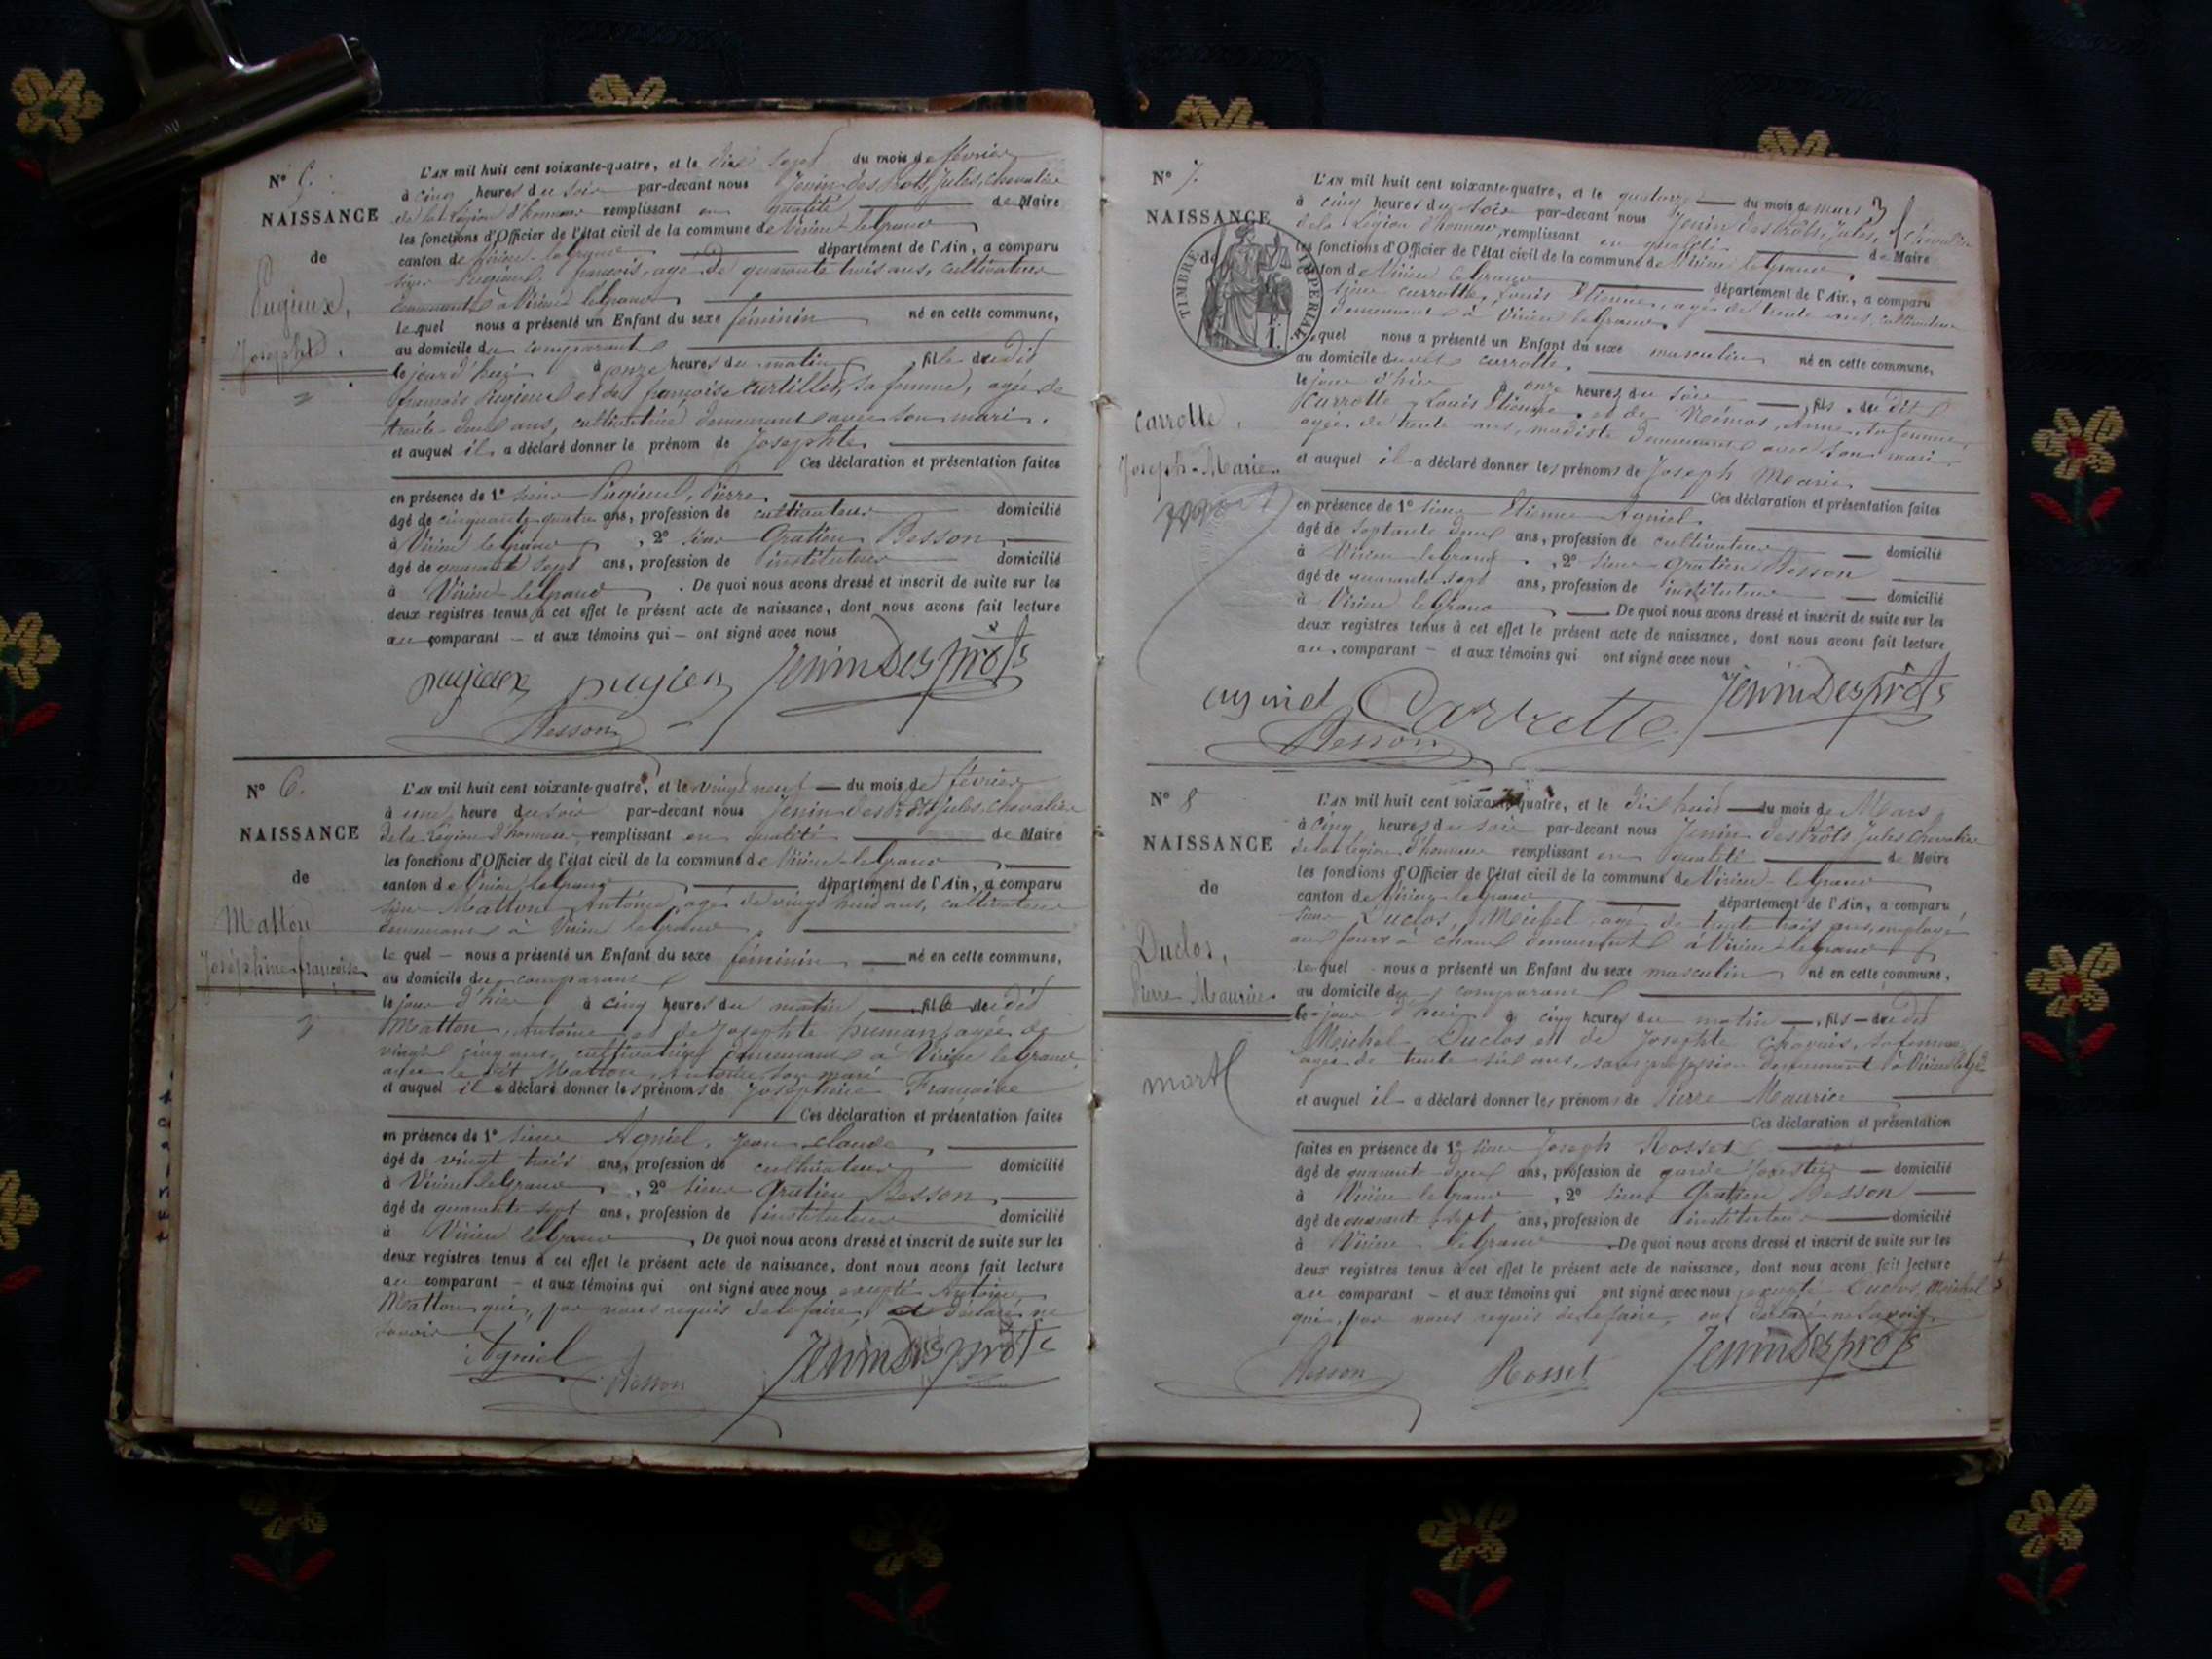 N° 5.
NAISSANCE
de
Pugieux,
Josephte.
L'AN mil huit cent soixante-quatre, et le dix sept du mois de février
à cinq heures du soir par-devant nous Jenin desprots, Jules, chevalier
de la Légion d'honneur remplissant en qualité de Maire
les fonctions d'Officier de l'état civil de la commune de Virieu le Grand
canton de Virieu le Grand département de l'Ain, a comparu
sieur Pugieux, françois, agé de quarante trois ans, cultivateur
demeurant à Virieu le Grand
lequel nous a présenté un Enfant du sexe féminin né en cette commune,
au domicile du comparant
le jour d'hui à onze heures du matin, fille du dit
françois Pugieux et de françoise Curtillet, sa femme, agée de
trente-deux ans, cultivatrice demeurant avec son mari.
et auquel il a déclaré donner le prénom de Josephte
Ces déclaration et présentation faites
en présence de 1° sieur Pugieux, Pierre
âgé de cinquante quatre ans, profession de cultivateur domicilié
à Virieu le Grand, 2° sieur Gratien Besson
âgé de quarante sept ans, profession de instituteur domicilié
à Virieu le Grand. De quoi nous avons dressé et inscrit de suite sur les
deux registres tenus à cet effet le présent acte de naissance, dont nous avons fait lecture
au comparant – et aux témoins qui – ont signé avec nous
pugieux pugieux JeninDesprots
Besson
N° 6.
NAISSANCE
de
Matton
Joséphine françoise
L'AN mil huit cent soixante-quatre, et le vingt neuf du mois de février
à une heure du soir par-devant nous Jenin desprots Jules, chevalier
de la Légion d'honneur, remplissant en qualité de Maire
les fonctions d'Officier de l'état civil de la commune de Virieu le Grand
canton de Virieu le Grand département de l'Ain, a comparu
sieur Matton, Antoine, agé de vingt huit ans, cultivateur
demeurant à Virieu le Grand
lequel – nous a présenté un Enfant du sexe féminin né en cette commune,
au domicile du comparant
le jour d'hier à cinq heures du matin, fille du dit
Matton, Antoine et de Josephte agée de
vingt cinq ans, cultivatrice demeurant à Virieu le Grand
avec le dit Matton, Antoine son mari
et auquel il a déclaré donner les prénoms de Joséphine Françoise
Ces déclaration et présentation faites
en présence de 1° sieur Agniel, Jean claude
âgé de vingt trois ans, profession de cultivateur domicilié
à Virieu le Grand, 2° sieur Gratien Besson,
âgé de quarante sept ans, profession de instituteur domicilié
à Virieu le Grand, De quoi nous avons dressé et inscrit de suite sur les
deux registres tenus à cet effet le présent acte de naissance, dont nous avons fait lecture
au comparant – et aux témoins qui ont signé avec nous excepté Antoine
Matton qui, par nous requis de le faire, a déclaré ne
savoir
Agniel Besson JeninDesprots
N° 7.
NAISSANCE
de
TIMBRE IMPERIAL
Carrotte,
Joseph-Marie
L'AN mil huit cent soixante-quatre, et le quatorze du mois de mars
à cinq heures du soir par-devant nous Jenin desprots, Jules, chevalier
de la Légion d'honneur, remplissant en qualité de Maire
les fonctions d'Officier de l'état civil de la commune de Virieu le Grand,
canton de Virieu le Grand département de l'Ain, a comparu
sieur Carrotte, Louis Etienne, agé de trente ans, cultivateur
demeurant à Virieu le Grand
lequel nous a présenté un Enfant du sexe masculin né en cette commune,
au domicile dudit Carrotte,
le jour d'hier à onze heures du soir, fils du dit
Carrotte, Louis Etienne, et de Némos, Anne, sa femme
agée de trente ans, modiste demeurant avec son mari
et auquel il a déclaré donner les prénoms de Joseph Marie
Ces déclaration et présentation faites
en présence de 1° sieur Etienne Agniel
âgé de septante deux ans, profession de cultivateur domicilié
à Virieu le Grand, 2° sieur Gratien Besson
âgé de quarante sept ans, profession de instituteur domicilié
à Virieu le Grand De quoi nous avons dressé et inscrit de suite sur les
deux registres tenus à cet effet le présent acte de naissance, dont nous avons fait lecture
au comparant – et aux témoins qui ont signé avec nous
agniel Carrotte JeninDesprots
Besson
N° 8
NAISSANCE
de
Duclos,
Pierre Maurice
mort
L'AN mil huit cent soixante-quatre, et le dix huit du mois de Mars
à cinq heures du soir par-devant nous Jenin desprôts Jules chevalier
de la Légion d'honneur remplissant en qualité de Maire
les fonctions d'Officier de l'état civil de la commune de Virieu le Grand
canton de Virieu le Grand département de l'Ain, a comparu
sieur Duclos, Michel agé de trente trois ans, employé
aux fours à chaux demeurant à Virieu le Grand
lequel nous a présenté un Enfant du sexe masculin né en cette commune,
au domicile du comparant
le jour d'hui à cinq heures du matin, fils du dit
Meichel Duclos et de Josephte sa femme
agée de trente six ans, sans profession demeurant à Virieu le Gd
et auquel il a déclaré donner les prénoms de Pierre Maurice
Ces déclaration et présentation
faites en présence de 1° sieur Joseph Rosset
âgé de quarante deux ans, profession de garde forestier domicilié
à Virieu le Grand, 2° sieur Gratien Besson
âgé de quarante sept ans, profession de instituteur domicilié
à Virieu le Grand De quoi nous avons dressé et inscrit de suite sur les
deux registres tenus à cet effet le présent acte de naissance, dont nous avons fait lecture
au comparant – et aux témoins qui ont signé avec nous excepté Duclos, Meichel
qui, par nous requis de le faire, ont déclaré ne savoir.
Besson Rosset JeninDesprots